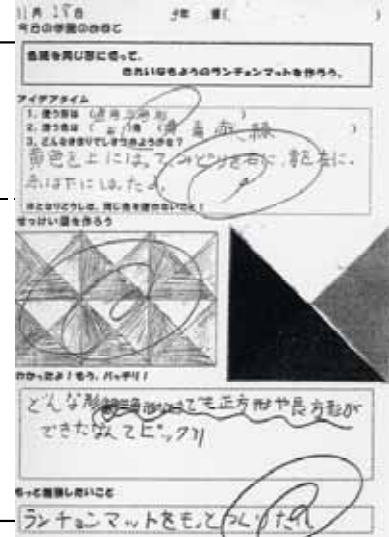 11月28日 3年 組(
今日の学習のめあて
色紙を同じ形に切って、
きれいなもようのランチョンマットを作ろう。
アイデアタイム
1、使う形は(
2、使う色は( )色( 黄 青 赤 緑 )
3、どんなきまりでしきつめようかな?
黄色を上にはって、みどりを右に、青を左に、
赤は下にはったよ。
※となりどうしは、同じ色を使わないこと!
せっけい図を作ろう
わかったよ!もう、バッチリ!
どんな でも正方形や長方形が
できたなんてビックリ
もっと勉強したいこと
ランチョンマットをもっとつくりたい